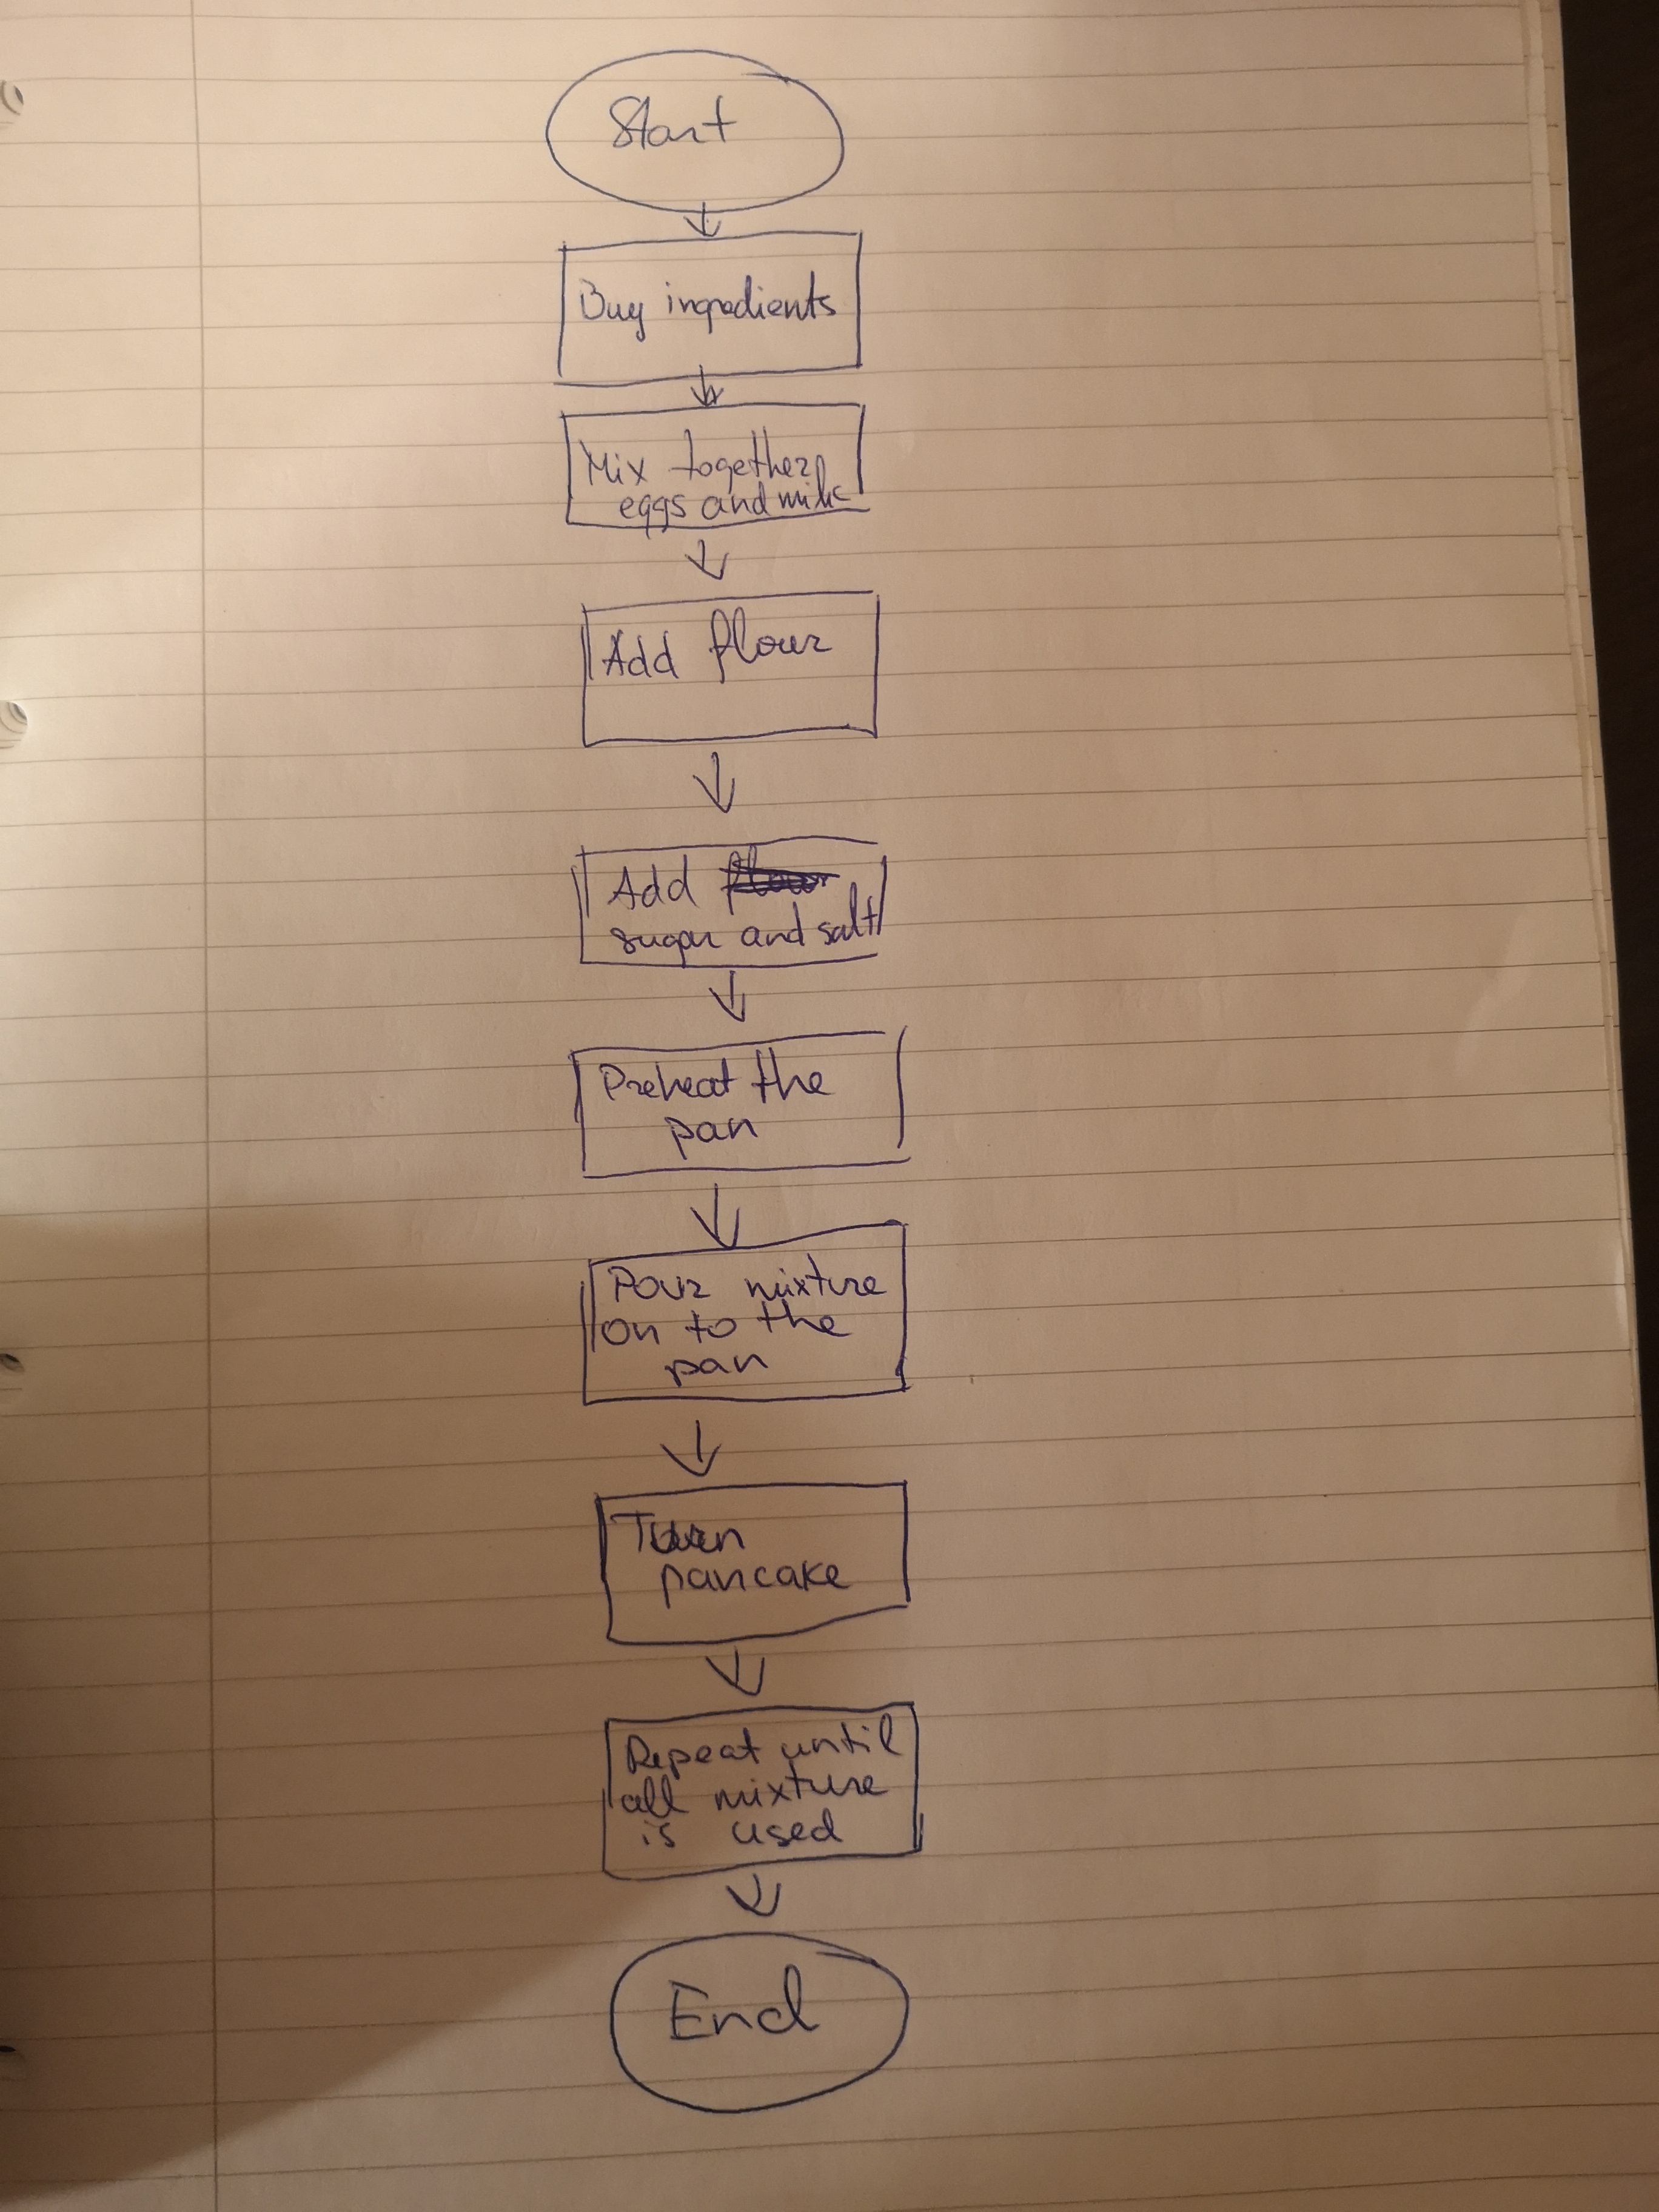 Start
Buy ingredients
Mix together
eggs and milk
Add flour
Add
sugar and salt
Preheat the
pan
Pour mixture
on to the
pan
Turn
pancake
Repeat until
all mixture
is used
End